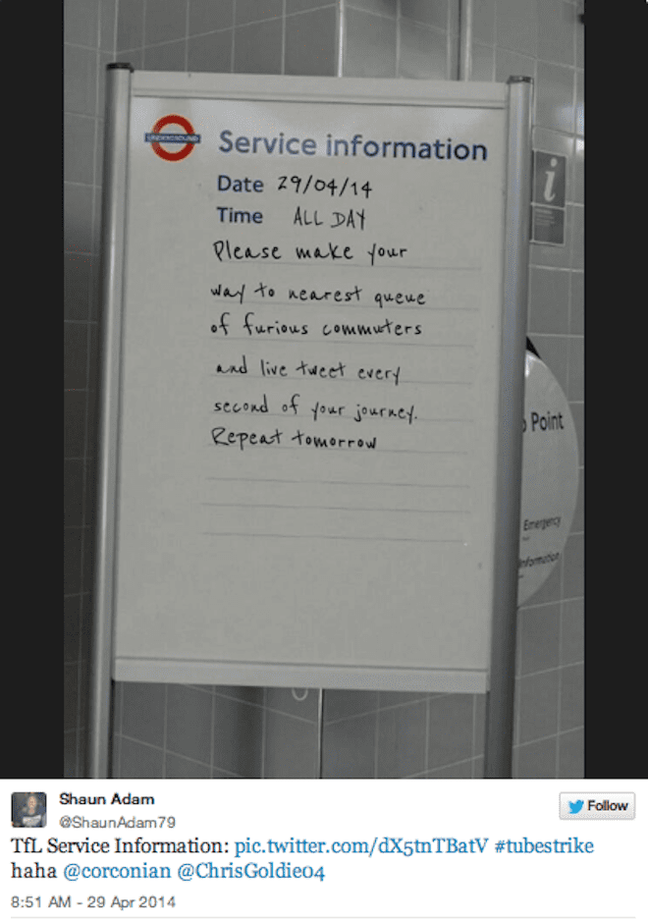 UNDERGROUND
Service information
Date 29/04/14
Time ALL DAY
Please make your
way to nearest queue
of furious commuters
and live tweet every
second of your journey.
Repeat tomorrow
i
Point
Emergency
Information
Shaun Adam
@ShaunAdam79
Follow
TfL Service Information: pic.twitter.com/dX5tnTBatV #tubestrike
haha @corconian @ChrisGoldie04
8:51 AM - 29 Apr 2014